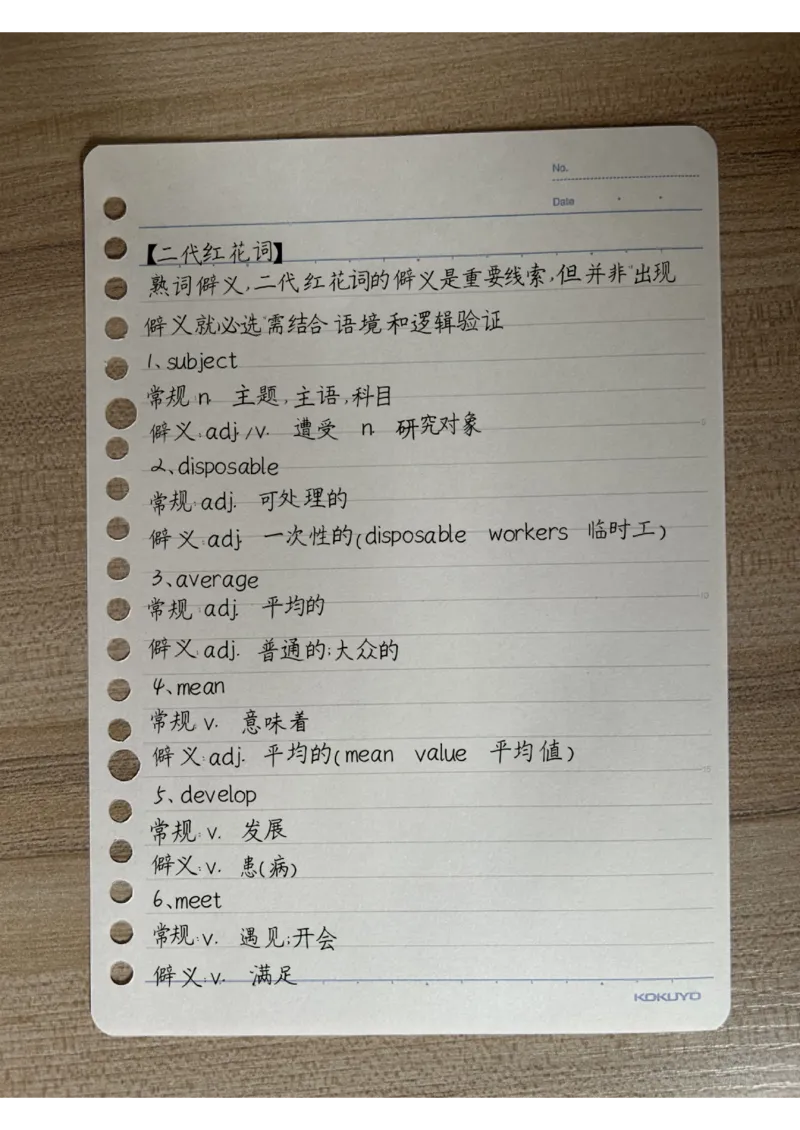 No.
Date
【二代红花词】
熟词僻义,二代红花词的僻义是重要线索,但并非"出现
僻义就必选"需结合语境和逻辑验证
1、subject
常规:n. 主题,主语,科目
僻义:adj./v. 遭受 n. 研究对象
2、disposable
常规:adj. 可处理的
僻义:adj. 一次性的(disposable workers 临时工)
3、average
常规:adj. 平均的
僻义:adj. 普通的;大众的
4、mean
常规:v. 意味着
僻义:adj. 平均的(mean value 平均值)
5、develop
常规:v. 发展
僻义:v. 患(病)
6、meet
常规:v. 遇见;开会
僻义:v. 满足
KOKUYO